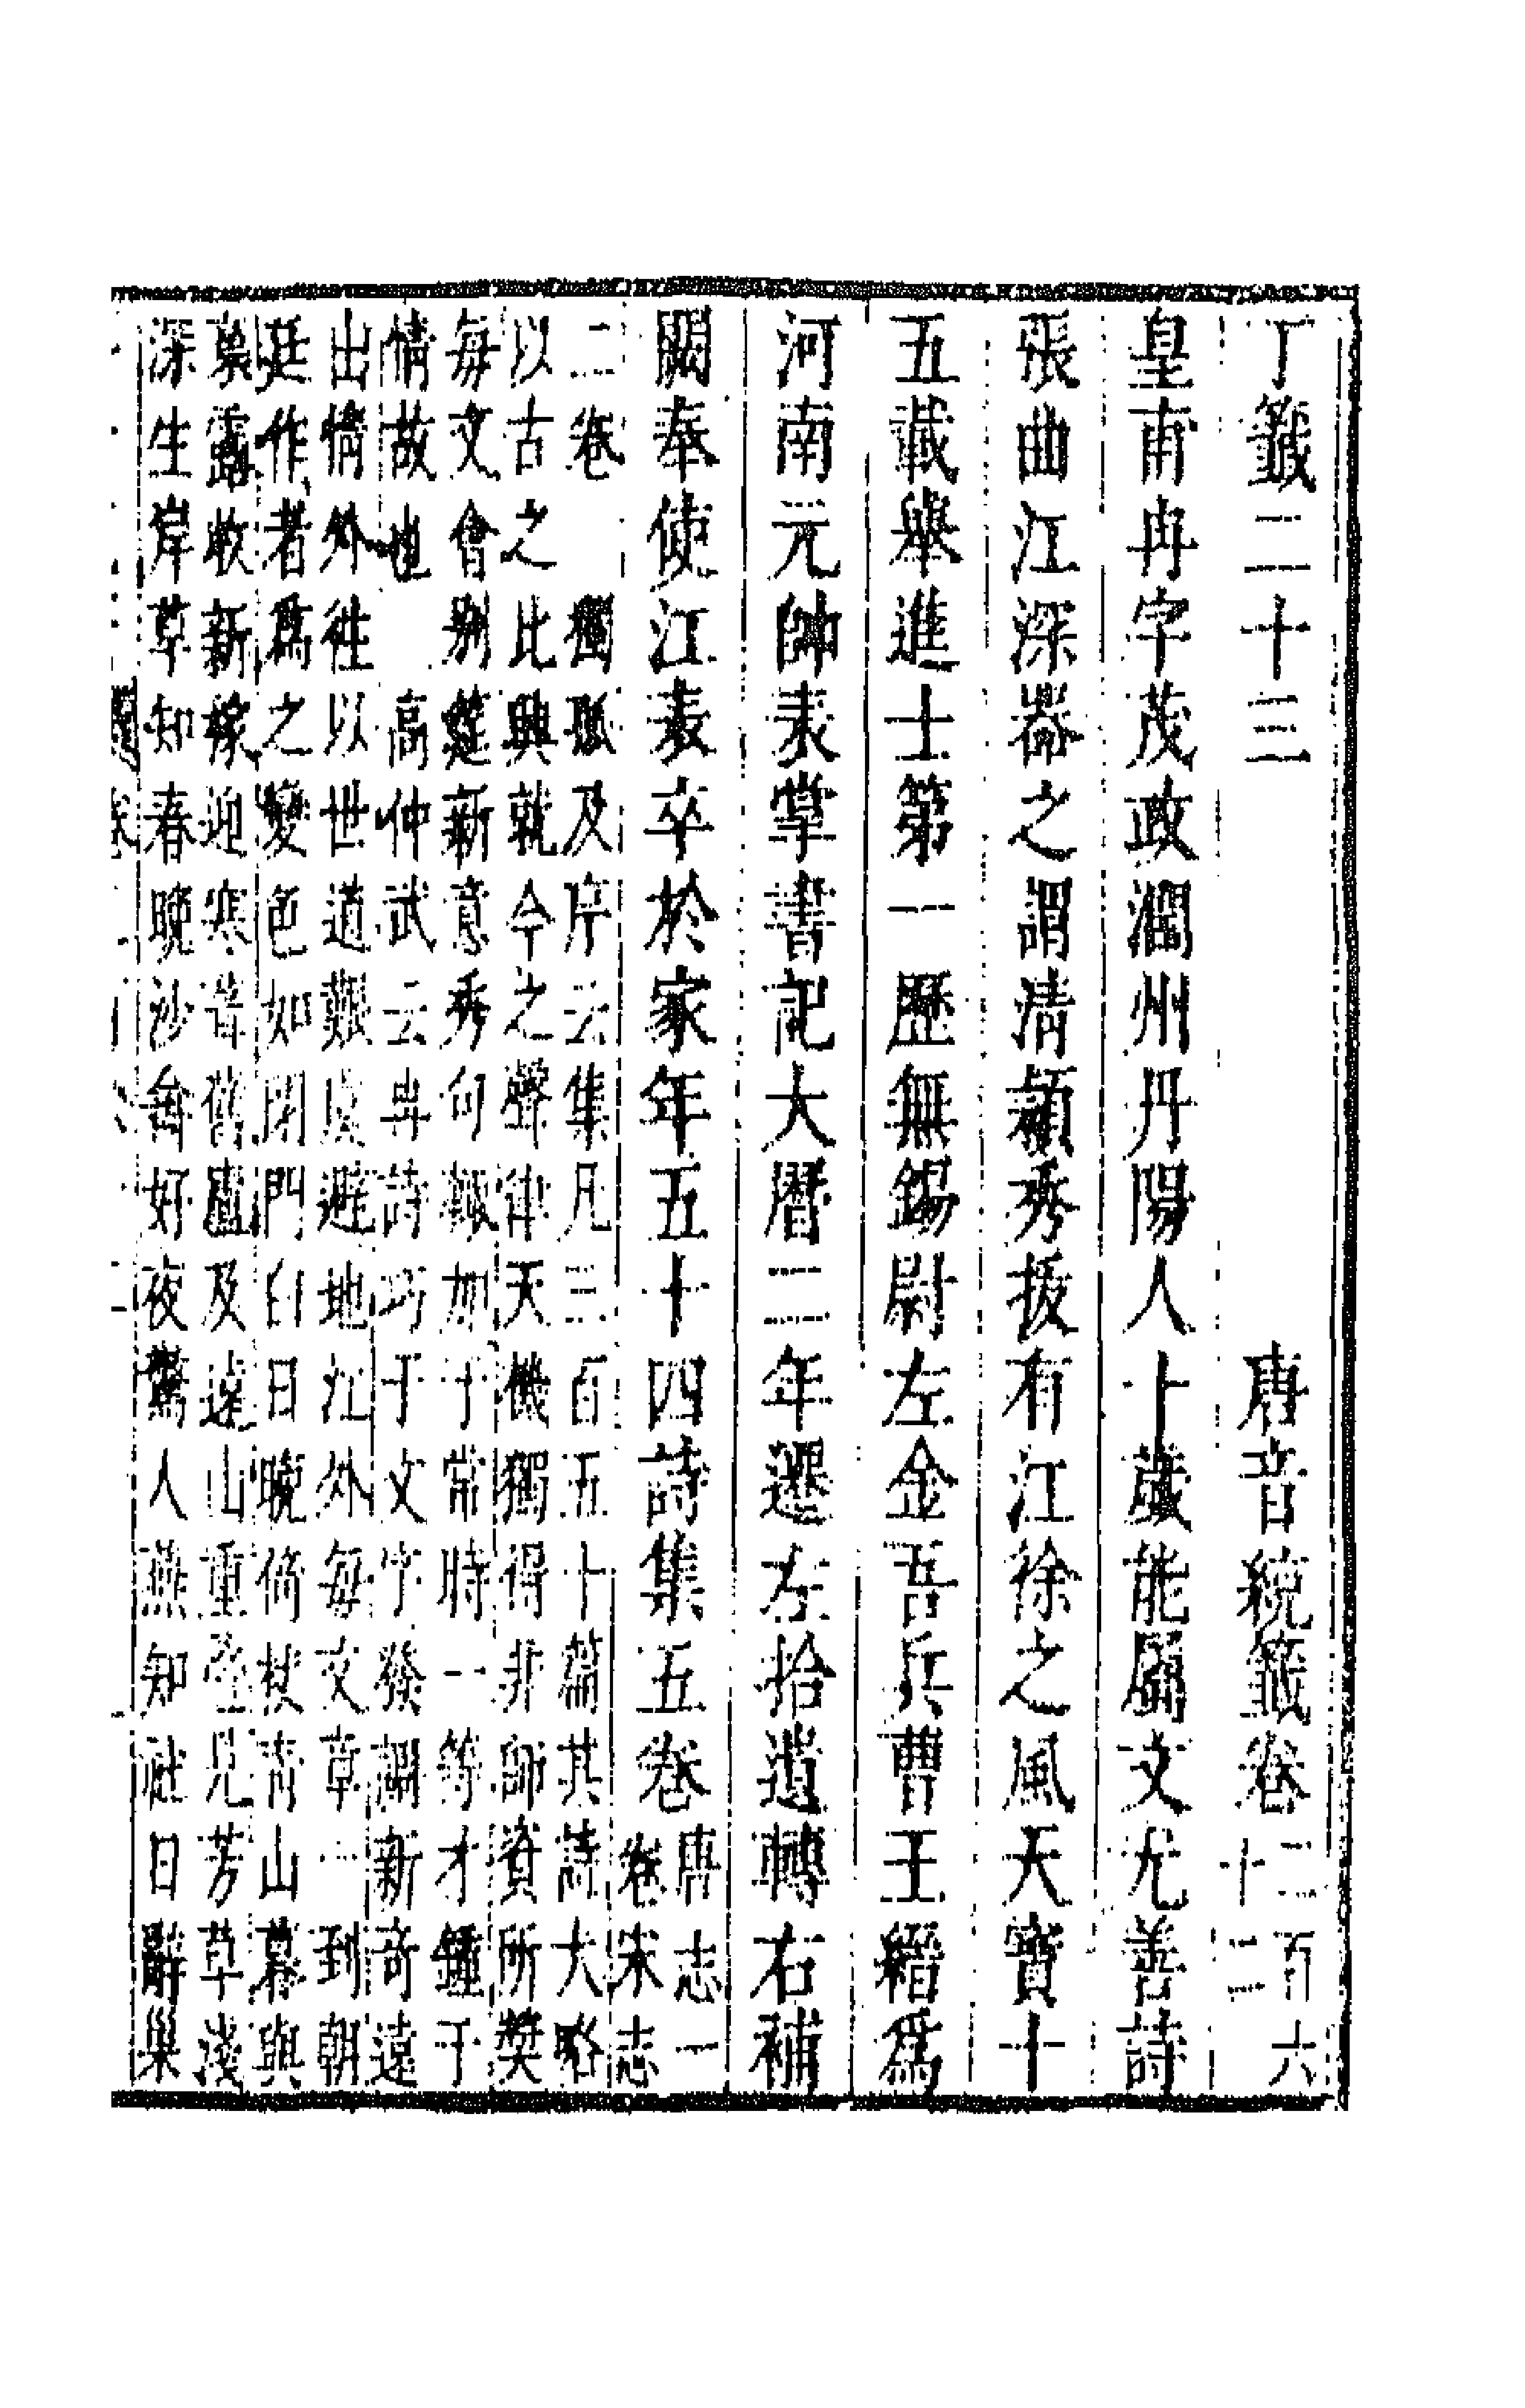 丁籖二十三　唐音統籖卷二百六十二
皇甫冉字茂政潤州丹陽人十歲能屬文尤善詩
張曲江深器之謂清頴秀拔有江徐之風天寶十
五載舉進士第一歷無錫尉左金吾兵曹王縉爲
河南元帥表掌書記大曆二年遷左拾遺轉右補
闕奉使江表卒於家年五十四詩集五卷唐志一卷宋志
二卷　獨孤及序云集凡三百五十篇其詩大略
以古之比興就今之聲律天機獨得非師資所奬
每文會别筵新意秀句輙加于常時一等才鍾于
情故也　高仲武云冉詩巧于文字發調新奇遠
出情外徃以世道艱虞避地江外每文章一到朝
挺作者爲之變色如閉門白日晚倚杖青山暮與
菓露收新稼迎寒葺舊廬及遠山重叠見芳草淺
深生岸草知春晚沙禽好夜驚人燕知社日辭巢